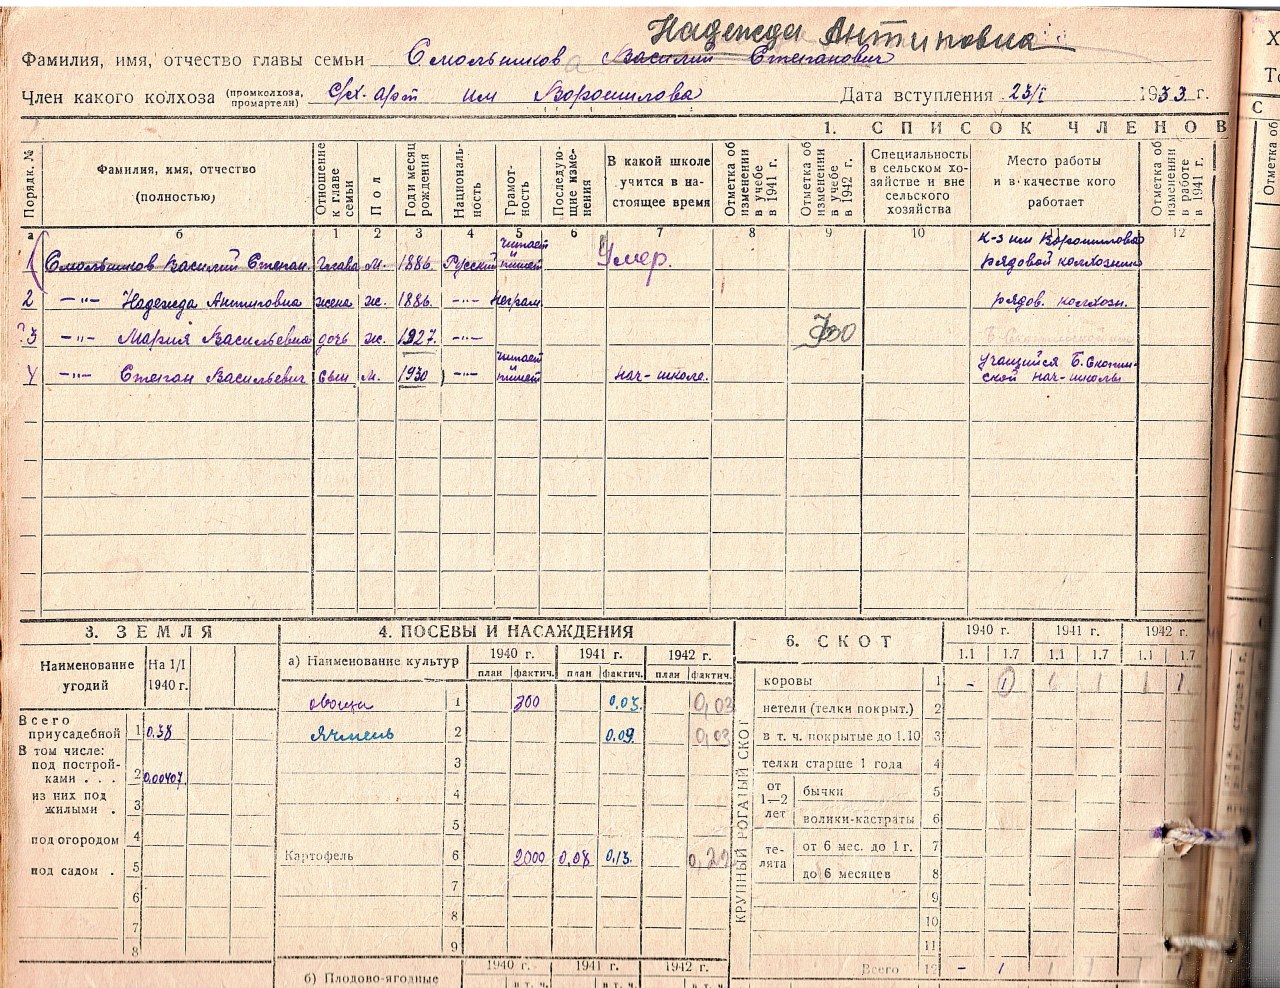 Надежда Антиповна
Фамилия, имя, отчество главы семьи Смольникова Василий Степанович
Член какого колхоза (промколхоза, промартели) с/х. арт им Ворошилова Дата вступления 23/I 1933 г.
1. СПИСОК ЧЛЕНОВ
Порядк. №
Фамилия, имя, отчество (полностью)
Отношение к главе семьи
Пол
Год и месяц рождения
Националь-ность
Грамот-ность
Последую-щие изме-нения
В какой школе учится в на-стоящее время
Отметка об изменении в учебе в 1941 г.
Отметка об изменении в учебе в 1942 г.
Специальность в сельском хо-зяйстве и вне сельского хозяйства
Место работы и в качестве кого работает
Отметка об изменении в работе в 1941 г.
Отметка об
а б 1 2 3 4 5 6 7 8 9 10 11 12
1 Смольников Василий Степан. глава м. 1886. Русский читает и пишет Умер. к-з им Ворошилова рядовой колхозник
2 —"— Надежда Антиповна жена ж. 1886. —"— неграм. рядов. колхозн.
3 —"— Мария Васильевна дочь ж. 1927. —"—
4 —"— Степан Васильевич сын м. 1930 —"— читает и пишет нач-школе. учащийся Б. нач-школы
3. ЗЕМЛЯ
Наименование угодий На 1/I 1940 г.
Всего приусадебной 1 0,38
В том числе:
под построй-ками . . . 2 0,00407
из них под жилыми . 3
под огородом 4
под садом . 5
6
7
8
4. ПОСЕВЫ И НАСАЖДЕНИЯ
а) Наименование культур 1940 г. 1941 г. 1942 г.
план фактич. план фактич. план фактич.
овощи 1 300 0,03. 0,03
Ячмень 2 0.09. 0,03
3
4
5
Картофель 6 2000 0,08 0,13. 0,22
7
8
9
б) Плодово-ягодные 1940 г. 1941 г. 1942 г.
в т. ч. в т. ч. в т. ч.
6. СКОТ
1940 г. 1941 г. 1942 г.
1.1 1.7 1.1 1.7 1.1 1.7
КРУПНЫЙ РОГАТЫЙ СКОТ
коровы 1 - 1 1 1 1 1
нетели (телки покрыт.) 2
в т. ч. покрытые до 1.10 3
телки старше 1 года 4
от 1—2 лет бычки 5
волики-кастраты 6
те-лята от 6 мес. до 1 г. 7
до 6 месяцев 8
9
10
11
Всего 12 - 1 1 1 1 1